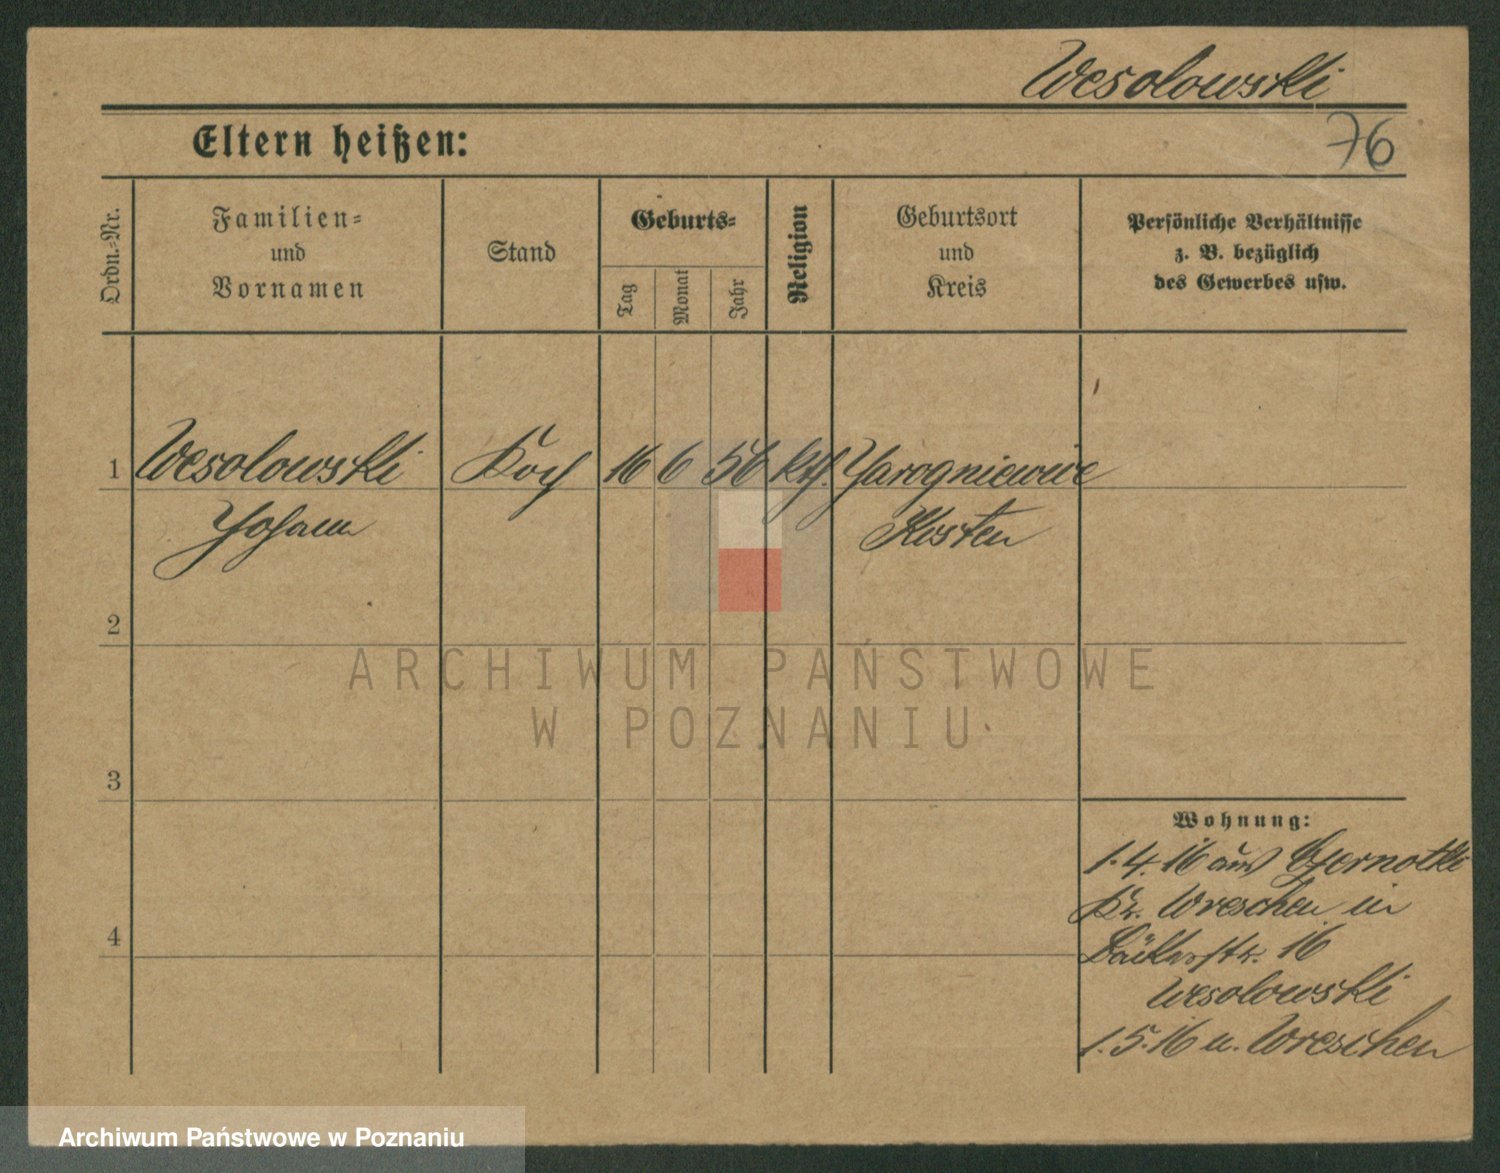 Wesolowski
Eltern heißen:
76
Ordn.-Nr.
Familien-
und
Vornamen
Stand
Geburts-
Tag
Monat
Jahr
Religion
Geburtsort
und
Kreis
Persönliche Verhältnisse
z. B. bezüglich
des Gewerbes usw.
1
Wesolowski
Koch
16
6
56
kth.
Yarogniewice
Johann
Kosten
2
ARCHIWUM PAŃSTWOWE
W POZNANIU
3
Wohnung:
1.4.16 aus
Kr. Wreschen in
4
Bäckerstr. 16
Wesolowski
1.5.16 n. Wreschen
Archiwum Państwowe w Poznaniu